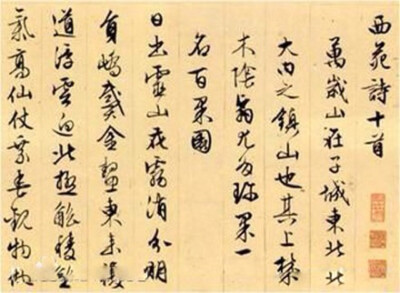 西苑詩十首
萬歲山在子城東北北
大內之鎮山也其上林
木陰翳尤多珍果一
名百果園
日出靈山花霧消分明
員嶠戴金鰲東來複
道浮雲迥北極觚稜王
氣高仙仗乘春觀物化